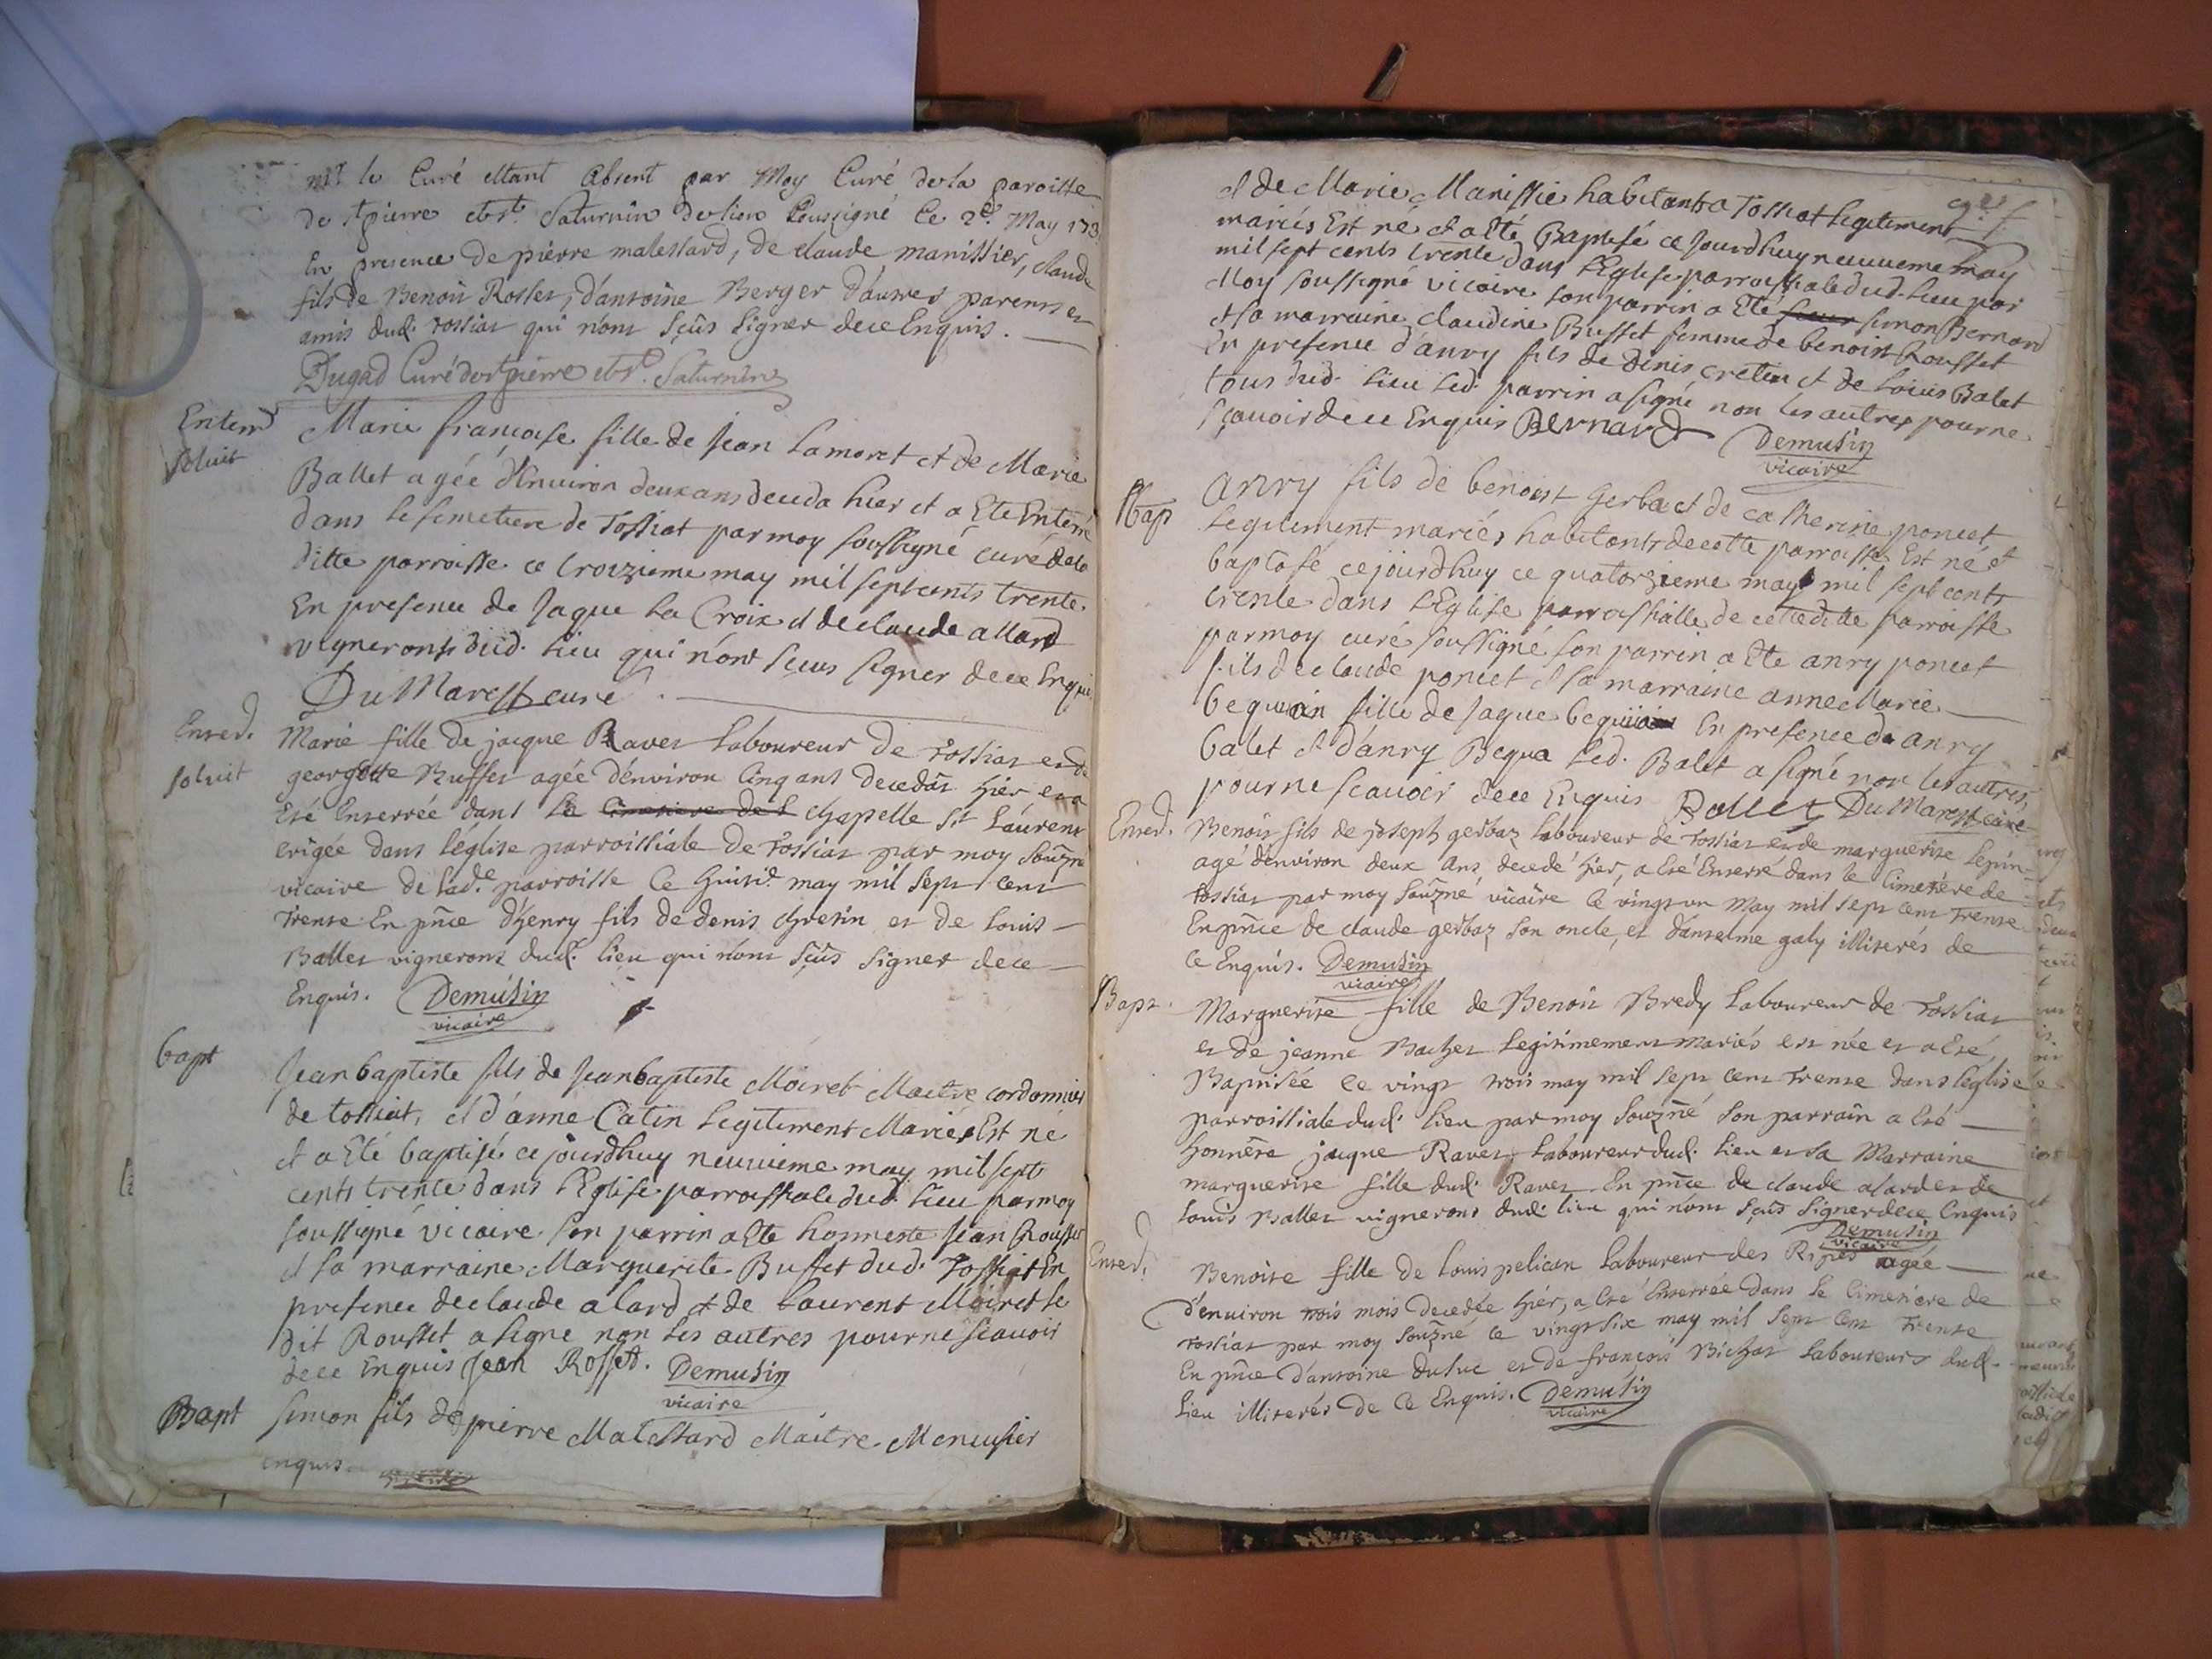 mr. le Curé estant absent par Moy Curé de la paroisse
de St pierre et St. Saturnin de lieu soussigné Ce 2e. May 173
En presence de pierre malestard, de claude manissier, claude
fils de Benoit Rosset, d'antoine Berger d'autres parents et
amis dud. tossiat qui n'ont sçûs signer de ce Enquis.
Dugad Curé de St pierre et St. Saturnin
Enterd
soluit
Marie françoise fille de Jean Lamoret et de Marie
Ballet agée d'Environ deux ans deceda hier et a Ete Enterré
dans le semetiere de Tossiat par moy soussigné curé de la
ditte parroisse ce troizieme may mil sept cents trente
En presence de Jaque La Croix et de claude allard
vignerons dud. lieu qui n'ont sceus signer de ce Enquis
DuMarest curé
Enterd.
soluit
Marie fille de jacque Ravet laboureur de Tossiat et de
georgette Buffet agée d'environ Cinq ans decedât hier et a
Eté Enterrée dans la Cimetiere de L chapelle St Laurent
erigée dans l'église parroissiale de Tossiat par moy souzne
vicaire de lade. parroisse Ce huitie. may mil sept cent
Trente En pnce d'henry fils de denis Chretin et de Louis
Ballet vignerons dud. lieu qui n'ont sçûs signer de ce
Enquis. Demusin
vicaire
bapt
Jean baptiste fils de Jean baptiste Moiret Maitre cordonnier
de tossiat, et d'anne Catin Legitiment Mariés Est né
et a Eté baptisé ce jourdhuy neuvieme may mil sept
cents trente dans l'Eglise parroissiale dud. lieu par moy
soussigné vicaire son parrin a Ete honneste Jean Rousset
et sa marraine Marguerite Buffet dud. Tossiat En
presence de claude alard et de Laurent Moiret le
dit Rousset a signé non les autres pour ne scavoir
de ce Enquis Jean Rosset. Demusin
vicaire
Bapt
Simon fils de pierre Malestard Maitre Menusier
enquis
et de Marie Manissie habitants a Tossiat Legitiment
mariés Est né et a Eté Baptisé ce Jourdhuy neuvieme may
mil sept cents trente dans l'Eglise parroissiale dud. lieu par
Moy soussigné vicaire son parrin a Eté sieur simon Bernard
et sa marraine claudine Buffet femme de benoist Rousset
En presence d'anry fils de denis cretin et de Louis Balet
tous dud. lieu led. parrin a signé non les autres pour ne
sçavoir de ce Enquis Bernard Demusin
vicaire
Bap
Anry fils de benoist Gerba et de catherine poncet
Legitiment mariés habitants de cette parroisse Est né et
baptisé cejourdhuy ce quatorzieme may mil sept cents
trente dans l'Eglise parroissialle de cettedite parroisse
par moy curé soussigné son parrin a Ete anry poncet
fils de claude poncet et sa marraine anne Marie
bequoin fille de Jaque bequion En presence d'anry
balet et d'anry Bequa led. Balet a signé non les autres,
pour ne scavoir de ce Enquis Ballet DuMarest curé
Enterd.
Benoit fils de joseph gerbaz laboureur de Tossiat et de marguerite Lepin
agé d'environ deux Ans decedé hier, a Eté Enterré dans le Cimetière de
Tossiat par moy souzné vicaire Ce vingt un May mil sept cent trente
En pnce de claude gerbaz son oncle, et d'anselme galy illiterés de
Ce Enquis. Demusin
vicaire
Bapt.
Marguerite fille de Benoit Bredy Laboureur de Tossiat
et de jeanne Bachet Legitimement mariés est née et a Eté
Baptisée Ce vingt trois may mil sept cent trente dans l'eglise
parroissiale dud. lieu par moy souzné son parrain a Eté
honnête jacque Ravet Laboureur dud. lieu et sa Marraine
marguerite fille dud. Ravet En pnce de claude alard et de
Louis Ballet vignerons dud. lieu qui n'ont sçûs signer de ce Enquis
Demusin
vicaire
Enterd.
Benoite fille de Louis pelican Laboureur des Ripes agée
d'environ trois mois decedée hier, a Eté Enterrée dans le Cimetiere de
Tossiat par moy souzné Ce vingt six may mil sept Cent Trente
En pnce d'antoine dusuc et de françois Bichat Laboureurs dud.
Lieu illiterés de Ce Enquis. Demusin
vicaire